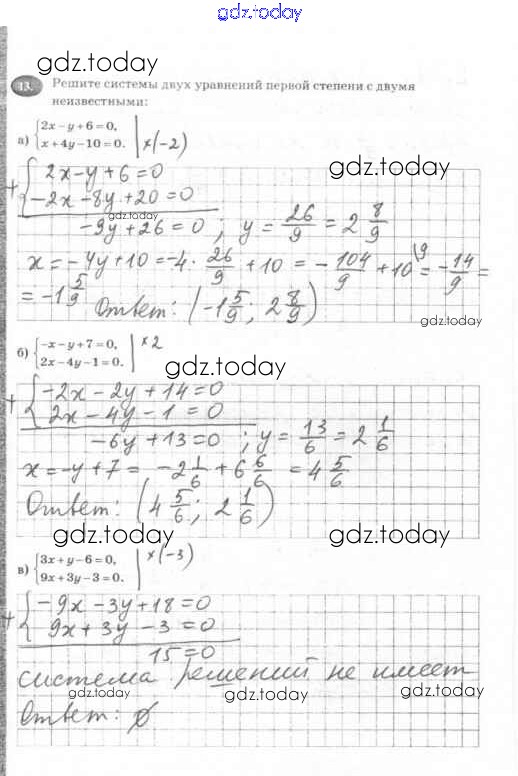 gdz.today
gdz.today
13. Решите системы двух уравнений первой степени с двумя
неизвестными:
а) {2x – y + 6 = 0, x + 4y – 10 = 0. | ×(-2)
gdz.today
+ {2x – y + 6 = 0
–2x – 8y + 20 = 0
gdz.today
–9y + 26 = 0 ; y = 26/9 = 2 8/9
x = –4y + 10 = –4 · 26/9 + 10 = – 104/9 + 10 \9 = – 14/9 =
= –1 5/9 Ответ: (–1 5/9 ; 2 8/9)
gdz.today
б) {–x – y + 7 = 0, 2x – 4y – 1 = 0. | ×2
gdz.today
+ {–2x – 2y + 14 = 0
2x – 4y – 1 = 0
–6y + 13 = 0 ; y = 13/6 = 2 1/6
x = –y + 7 = –2 1/6 + 6 6/6 = 4 5/6
Ответ: (4 5/6 ; 2 1/6)
gdz.today
gdz.today
в) {3x + y – 6 = 0, 9x + 3y – 3 = 0. | ×(-3)
+ {–9x – 3y + 18 = 0
9x + 3y – 3 = 0
15 = 0
система решений не имеет
gdz.today
gdz.today
gdz.today
Ответ: ∅